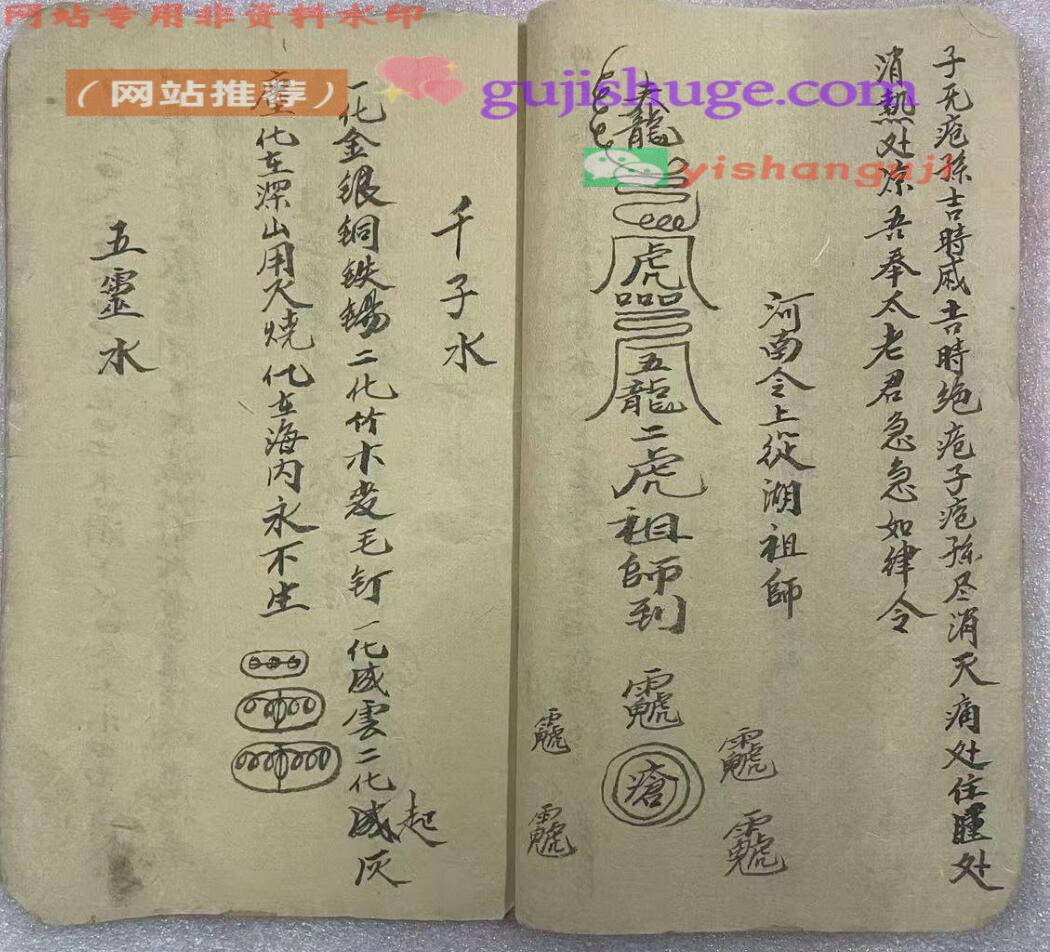 网站专用非资料水印
（网站推荐）
gujishuge.com
yishanguji
子旡疮孫吉時戚吉時绝疮子疮孫尽消灭痛处住瞳处
消熱处凉吾奉太老君急急如律令
河南令上從湖祖師
龍
虎
五龍二虎祖師到
瘡
千子水
一化金银铜铁锡二化竹木发毛钉一化成雲二化成灰
起
化在深山用火烧化在海内永不生
五靈水